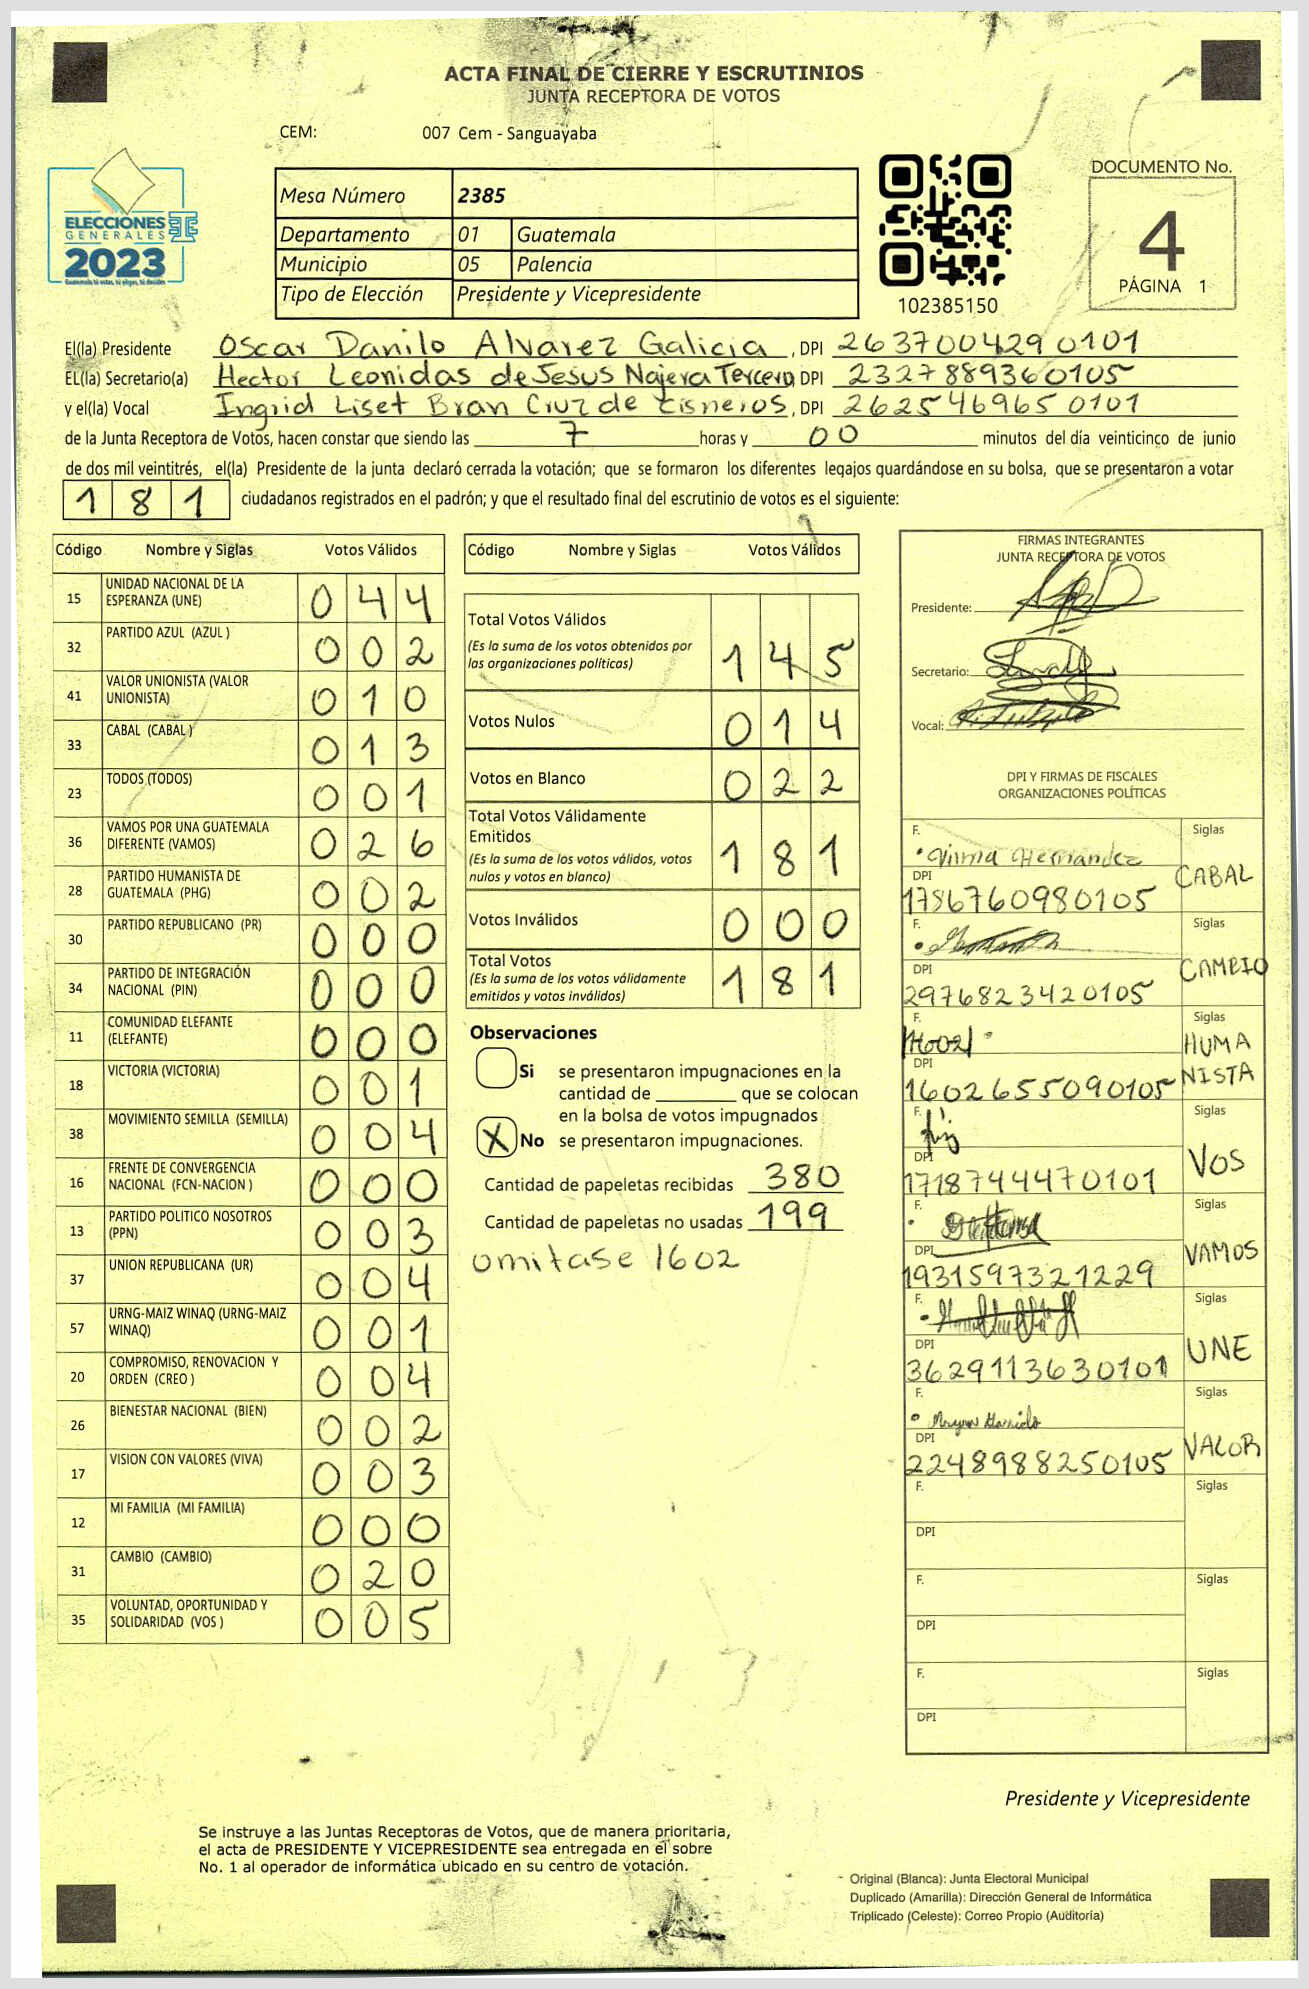 ACTA FINAL DE CIERRE Y ESCRUTINIOS
JUNTA RECEPTORA DE VOTOS
CEM: 007 Cem - Sanguayaba
ELECCIONES
GENERALES
2023
Guatemala tú votas, tú eliges, tú decides
Mesa Número 2385
Departamento 01 Guatemala
Municipio 05 Palencia
Tipo de Elección Presidente y Vicepresidente
102385150
DOCUMENTO No.
4
PÁGINA 1
El(la) Presidente Oscar Danilo Alvarez Galicia, DPI 2637004290101
EL(la) Secretario(a) Hector Leonidas de Jesus Najera Tercero, DPI 2327889360105
y el(la) Vocal Ingrid Liset Bran Cruz de Cisneros, DPI 2625469650101
de la Junta Receptora de Votos, hacen constar que siendo las 7 horas y 00 minutos del día veinticinco de junio
de dos mil veintitrés, el(la) Presidente de la junta declaró cerrada la votación; que se formaron los diferentes legajos guardándose en su bolsa, que se presentaron a votar
181 ciudadanos registrados en el padrón; y que el resultado final del escrutinio de votos es el siguiente:
Código Nombre y Siglas Votos Válidos
15 UNIDAD NACIONAL DE LA ESPERANZA (UNE) 044
32 PARTIDO AZUL (AZUL ) 002
41 VALOR UNIONISTA (VALOR UNIONISTA) 010
33 CABAL (CABAL ) 013
23 TODOS (TODOS) 001
36 VAMOS POR UNA GUATEMALA DIFERENTE (VAMOS) 026
28 PARTIDO HUMANISTA DE GUATEMALA (PHG) 002
30 PARTIDO REPUBLICANO (PR) 000
34 PARTIDO DE INTEGRACIÓN NACIONAL (PIN) 000
11 COMUNIDAD ELEFANTE (ELEFANTE) 000
18 VICTORIA (VICTORIA) 001
38 MOVIMIENTO SEMILLA (SEMILLA) 004
16 FRENTE DE CONVERGENCIA NACIONAL (FCN-NACION ) 000
13 PARTIDO POLITICO NOSOTROS (PPN) 003
37 UNION REPUBLICANA (UR) 004
57 URNG-MAIZ WINAQ (URNG-MAIZ WINAQ) 001
20 COMPROMISO, RENOVACION Y ORDEN (CREO ) 004
26 BIENESTAR NACIONAL (BIEN) 002
17 VISION CON VALORES (VIVA) 003
12 MI FAMILIA (MI FAMILIA) 000
31 CAMBIO (CAMBIO) 020
35 VOLUNTAD, OPORTUNIDAD Y SOLIDARIDAD (VOS ) 005
Código Nombre y Siglas Votos Válidos
Total Votos Válidos 145
(Es la suma de los votos obtenidos por
las organizaciones políticas)
Votos Nulos 014
Votos en Blanco 022
Total Votos Válidamente
Emitidos 181
(Es la suma de los votos válidos, votos
nulos y votos en blanco)
Votos Inválidos 000
Total Votos 181
(Es la suma de los votos válidamente
emitidos y votos inválidos)
Observaciones
Si se presentaron impugnaciones en la
cantidad de ________ que se colocan
en la bolsa de votos impugnados
X No se presentaron impugnaciones.
Cantidad de papeletas recibidas 380
Cantidad de papeletas no usadas 199
omitase 1602
FIRMAS INTEGRANTES
JUNTA RECEPTORA DE VOTOS
Presidente:
Secretario:
Vocal:
DPI Y FIRMAS DE FISCALES
ORGANIZACIONES POLÍTICAS
F. Vilma Hernandez Siglas
DPI 1786760980105 CABAL
F. Siglas
DPI 2976823420105 CAMBIO
F. 1602 Siglas
DPI 1602655090105 HUMANISTA
F. Siglas
DPI 1718744470101 VOS
F. Siglas
DPI 1931597321229 VAMOS
F. Siglas
DPI 3629113630101 UNE
F. Siglas
DPI 2248988250105 VALOR
F. Siglas
DPI
F. Siglas
DPI
F. Siglas
DPI
Presidente y Vicepresidente
Se instruye a las Juntas Receptoras de Votos, que de manera prioritaria,
el acta de PRESIDENTE Y VICEPRESIDENTE sea entregada en el sobre
No. 1 al operador de informática ubicado en su centro de votación.
Original (Blanca): Junta Electoral Municipal
Duplicado (Amarilla): Dirección General de Informática
Triplicado (Celeste): Correo Propio (Auditoría)